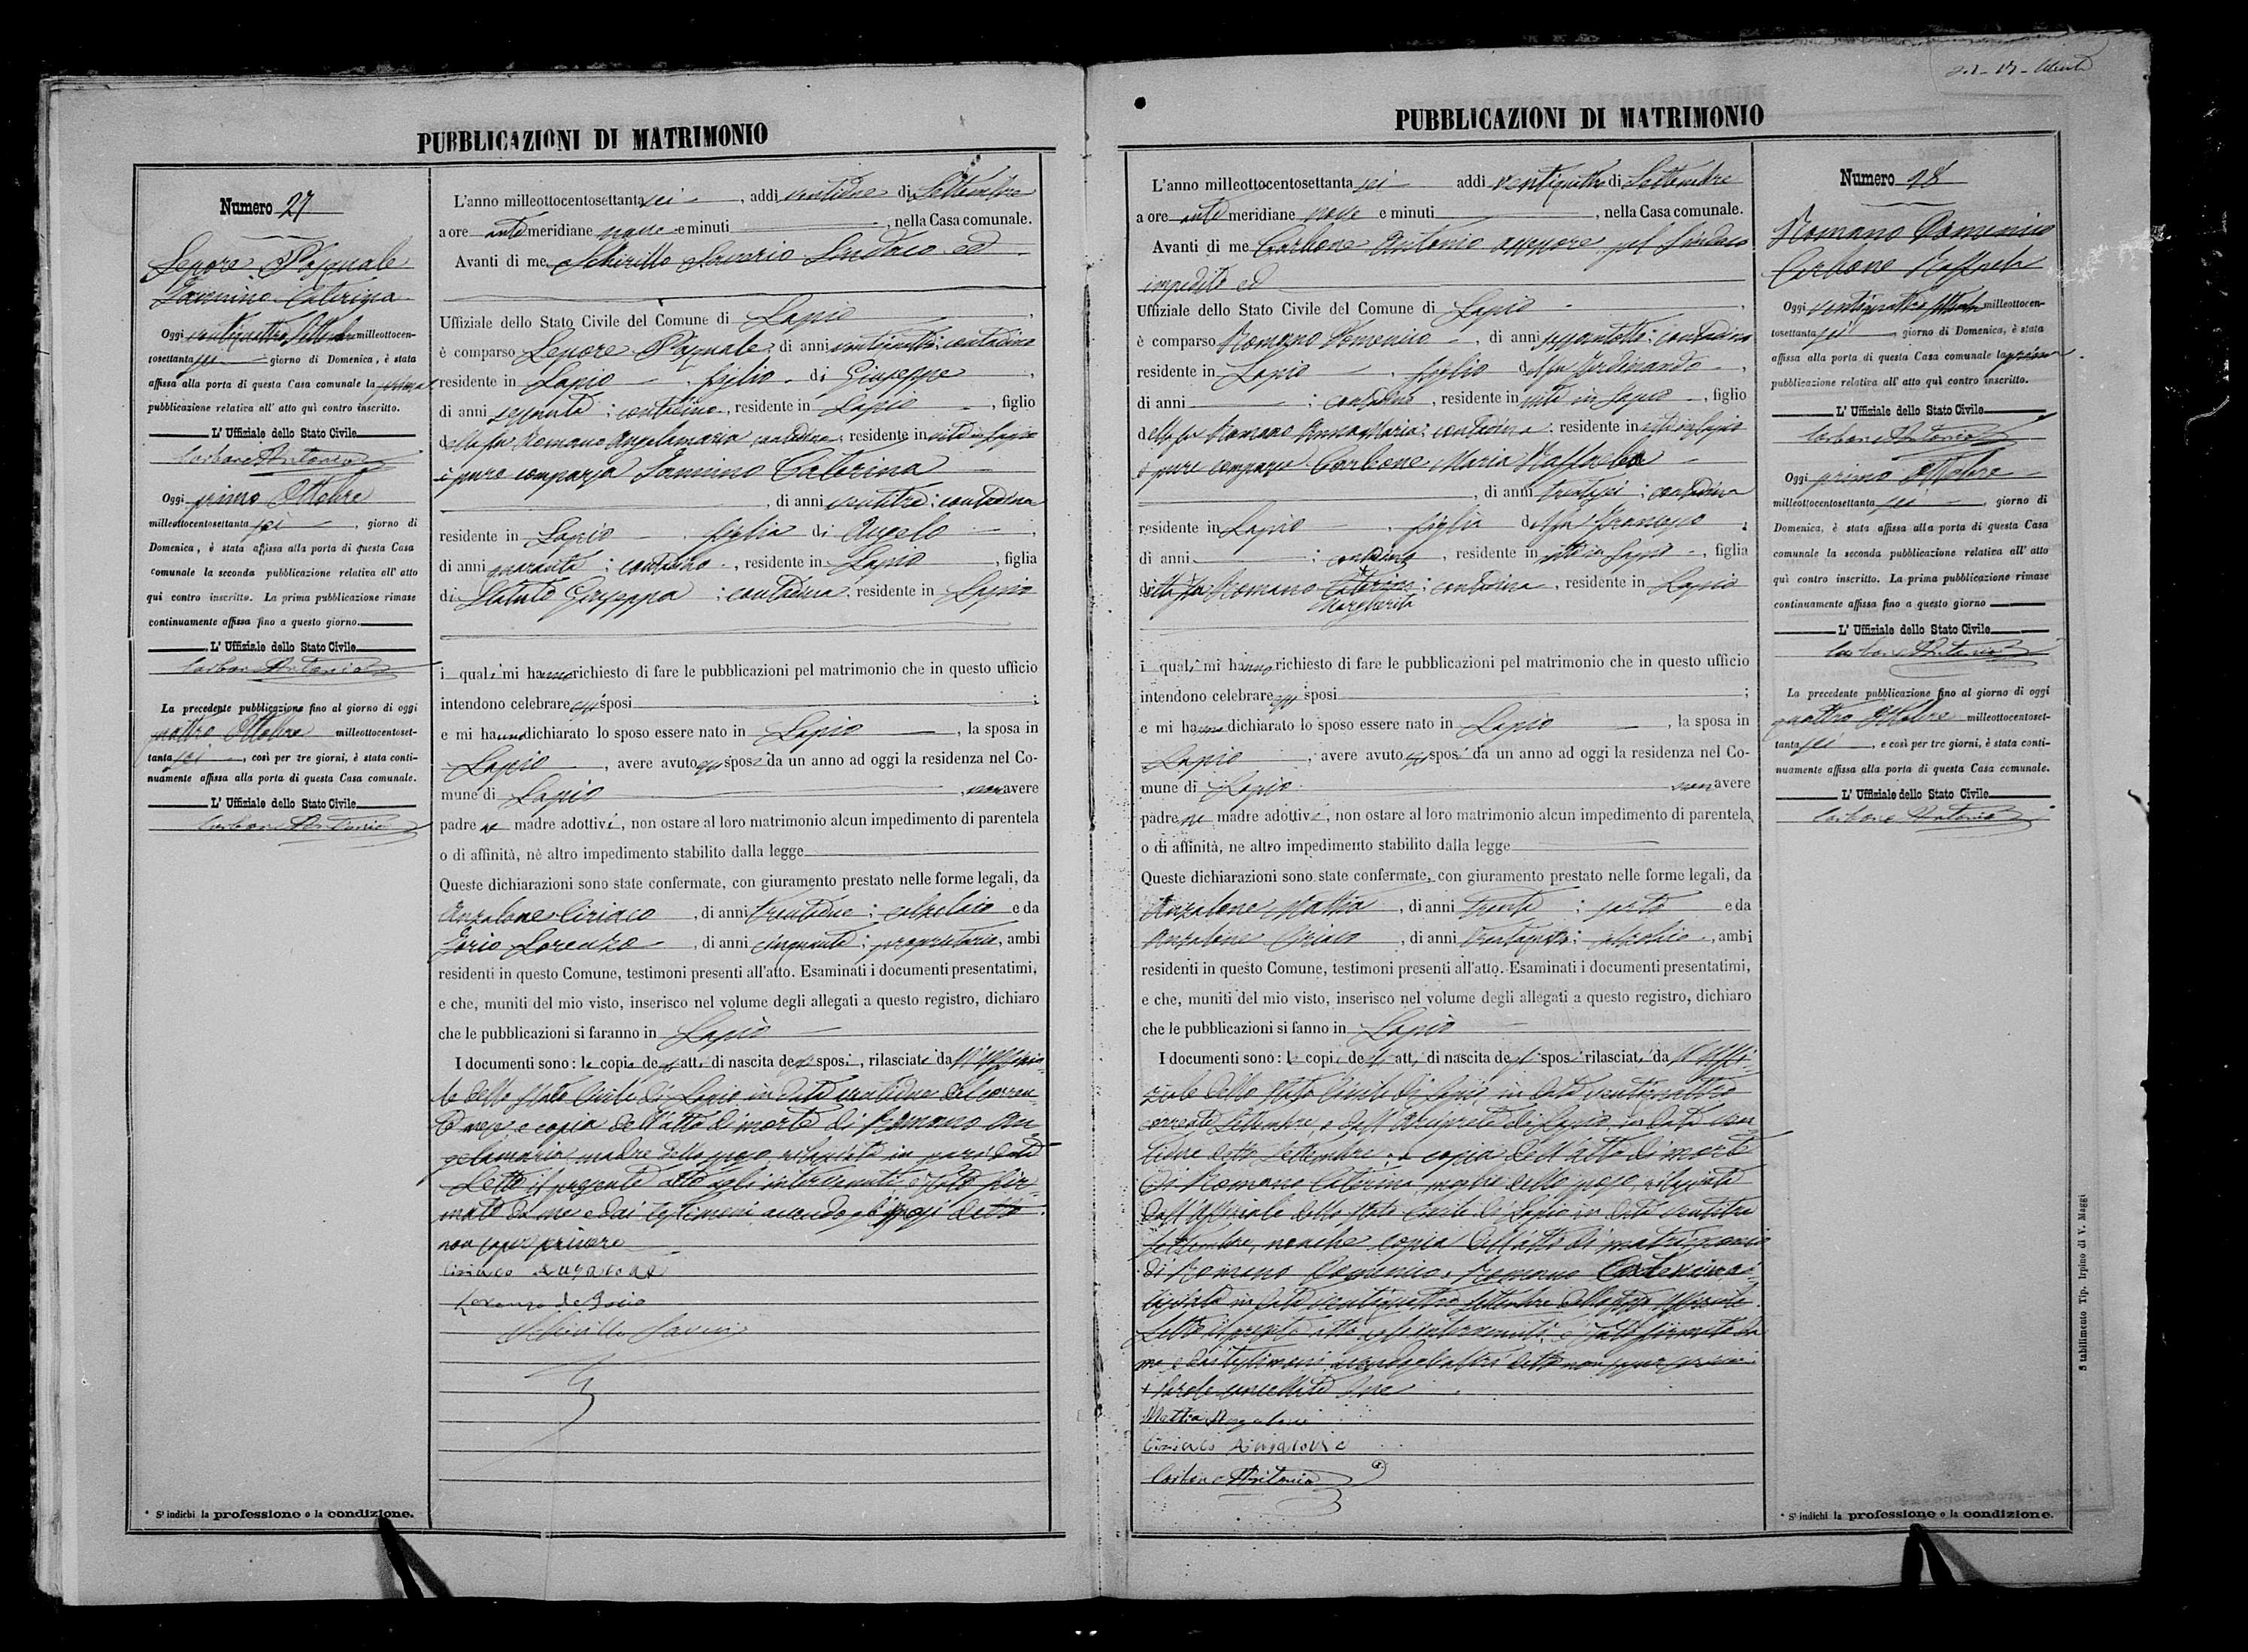 PUBBLICAZIONI DI MATRIMONIO
Numero 27
Lepore Pasquale
Iannino Caterina
Oggi ventiquattro Settembre milleottocen-
tosettanta sei giorno di Domenica, è stata
affissa alla porta di questa Casa comunale la prima
pubblicazione relativa all' atto qui contro inscritto.
L' Uffiziale dello Stato Civile
Carbone Antonio
Oggi primo Ottobre
milleottocentosettanta sei, giorno di
Domenica, è stata affissa alla porta di questa Casa
comunale la seconda pubblicazione relativa all' atto
qui contro inscritto. La prima pubblicazione rimase
continuamente affissa fino a questo giorno.
L' Uffiziale dello Stato Civile
Carbone Antonio
La precedente pubblicazione fino al giorno di oggi
quattro Ottobre milleottocentoset-
tanta sei, così per tre giorni, è stata conti-
nuamente affissa alla porta di questa Casa comunale.
L' Uffiziale dello Stato Civile
Carbone Antonio
* S' indichi la professione o la condizione.
L'anno milleottocentosettanta sei, addì ventidue di Settembre
a ore ante meridiane nove e minuti , nella Casa comunale.
Avanti di me Schirillo Saverio Sindaco ed
Uffiziale dello Stato Civile del Comune di Lapio,
è comparso Lepore Pasquale, di anni ventiquattro; contadino
residente in Lapio, figlio di Giuseppe,
di anni sessanta; contadino, residente in Lapio, figlio
della fu Romano Angelamaria contadina; residente in vita in Lapio
è pure comparsa Iannino Caterina
, di anni ventitre; contadina
residente in Lapio, figlia di Angelo,
di anni quaranta; contadino, residente in Lapio, figlia
di Statuto Giuseppa; contadina; residente in Lapio
i quali mi hanno richiesto di fare le pubblicazioni pel matrimonio che in questo ufficio
intendono celebrare essi sposi;
e mi hanno dichiarato lo sposo essere nato in Lapio, la sposa in
Lapio, avere avuto essi sposi da un anno ad oggi la residenza nel Co-
mune di Lapio, non avere
padre nè madre adottivi, non ostare al loro matrimonio alcun impedimento di parentela
o di affinità, nè altro impedimento stabilito dalla legge
Queste dichiarazioni sono state confermate, con giuramento prestato nelle forme legali, da
Anzalone Ciriaco, di anni trentadue; calzolaio e da
Iorio Lorenzo, di anni cinquanta; proprietario, ambi
residenti in questo Comune, testimoni presenti all'atto. Esaminati i documenti presentatimi,
e che, muniti del mio visto, inserisco nel volume degli allegati a questo registro, dichiaro
che le pubblicazioni si faranno in Lapio
I documenti sono: le copie degli atti di nascita degli sposi, rilasciate dall'Uffizia-
le dello Stato Civile di Lapio in data ventidue del corren-
te mese, e copia dell'atto di morte di Romano An
gelamaria, madre dello sposo rilasciata in pari data
Letto il presente atto agli intervenuti è stato fir-
mato da me e dai testimoni avendo gli sposi detto
non saper scrivere
Ciriaco Anzalone
Lorenzo de Iorio
Schirillo Saverio
PUBBLICAZIONI DI MATRIMONIO
L'anno milleottocentosettanta sei addì ventiquattro di Settembre
a ore ante meridiane nove e minuti , nella Casa comunale.
Avanti di me Carbone Antonio assessore pel Sindaco
impedito ed
Uffiziale dello Stato Civile del Comune di Lapio,
è comparso Romano Domenico, di anni sessantotto; contadino
residente in Lapio, figlio del fu Ferdinando,
di anni ; contadino, residente in vita in Lapio, figlio
della fu Romano Annamaria; contadina; residente in vita in Lapio
è pure comparsa Carbone Maria Raffaela
, di anni trentasei; contadina
residente in Lapio, figlia del fu Francesco;
di anni ; contadino, residente in vita in Lapio, figlia
della fu Romano Caterina; contadina, residente in Lapio
Margherita
i quali mi hanno richiesto di fare le pubblicazioni pel matrimonio che in questo ufficio
intendono celebrare essi sposi;
e mi hanno dichiarato lo sposo essere nato in Lapio, la sposa in
Lapio, avere avuto essi sposi da un anno ad oggi la residenza nel Co-
mune di Lapio non avere
padre nè madre adottivi, non ostare al loro matrimonio alcun impedimento di parentela
o di affinità, ne altro impedimento stabilito dalla legge
Queste dichiarazioni sono state confermate, con giuramento prestato nelle forme legali, da
Anzalone Mattia, di anni trenta; sarto e da
Anzalone Ciriaco, di anni trentaquattro; calzolaio, ambi
residenti in questo Comune, testimoni presenti all'atto. Esaminati i documenti presentatimi,
e che, muniti del mio visto, inserisco nel volume degli allegati a questo registro, dichiaro
che le pubblicazioni si fanno in Lapio
I documenti sono: le copie degli atti di nascita degli sposi rilasciati dall'Uffi-
ziale dello Stato Civile di Lapio in data ventiquattro
corrente Settembre, e dall'Arciprete di Lapio in data ven
tidue detto Settembre; e copia dell'atto di morte
di Romano Caterina, moglie dello sposo rilasciata
dall'Uffiziale dello Stato Civile di Lapio in data ventitre
Settembre, nonche copia dell'atto di matrimonio
di Romano Domenico e Romano Caterina ri-
lasciata in data ventiquattro Settembre dallo stesso Uffiziale
Letto il presente atto agli intervenuti è stato firmato da
me e dai testimoni avendo gli altri detto non saper scrivere
Parole cancellate una
Mattia Anzalone
Ciriaco Anzalone
Carbone Antonio
Numero 28
Romano Domenico
Carbone Raffaela
Oggi ventiquattro Settembre milleottocen-
tosettanta sei, giorno di Domenica, è stata
affissa alla porta di questa Casa comunale la prima
pubblicazione relativa all' atto quì contro inscritto.
L' Uffiziale dello Stato Civile
Carbone Antonio
Oggi primo Ottobre
milleottocentosettanta sei, giorno di
Domenica, è stata affissa alla porta di questa Casa
comunale la seconda pubblicazione relativa all' atto
quì contro inscritto. La prima pubblicazione rimase
continuamente affissa fino a questo giorno
L' Uffiziale dello Stato Civile
Carbone Antonio
La precedente pubblicazione fino al giorno di oggi
quattro Ottobre milleottocentoset-
tanta sei, e così per tre giorni, è stata conti-
nuamente affissa alla porta di questa Casa comunale.
L' Uffiziale dello Stato Civile
Carbone Antonio
* S' indichi la professione o la condizione.
Stabilimento Tip. Irpino di V. Maggi